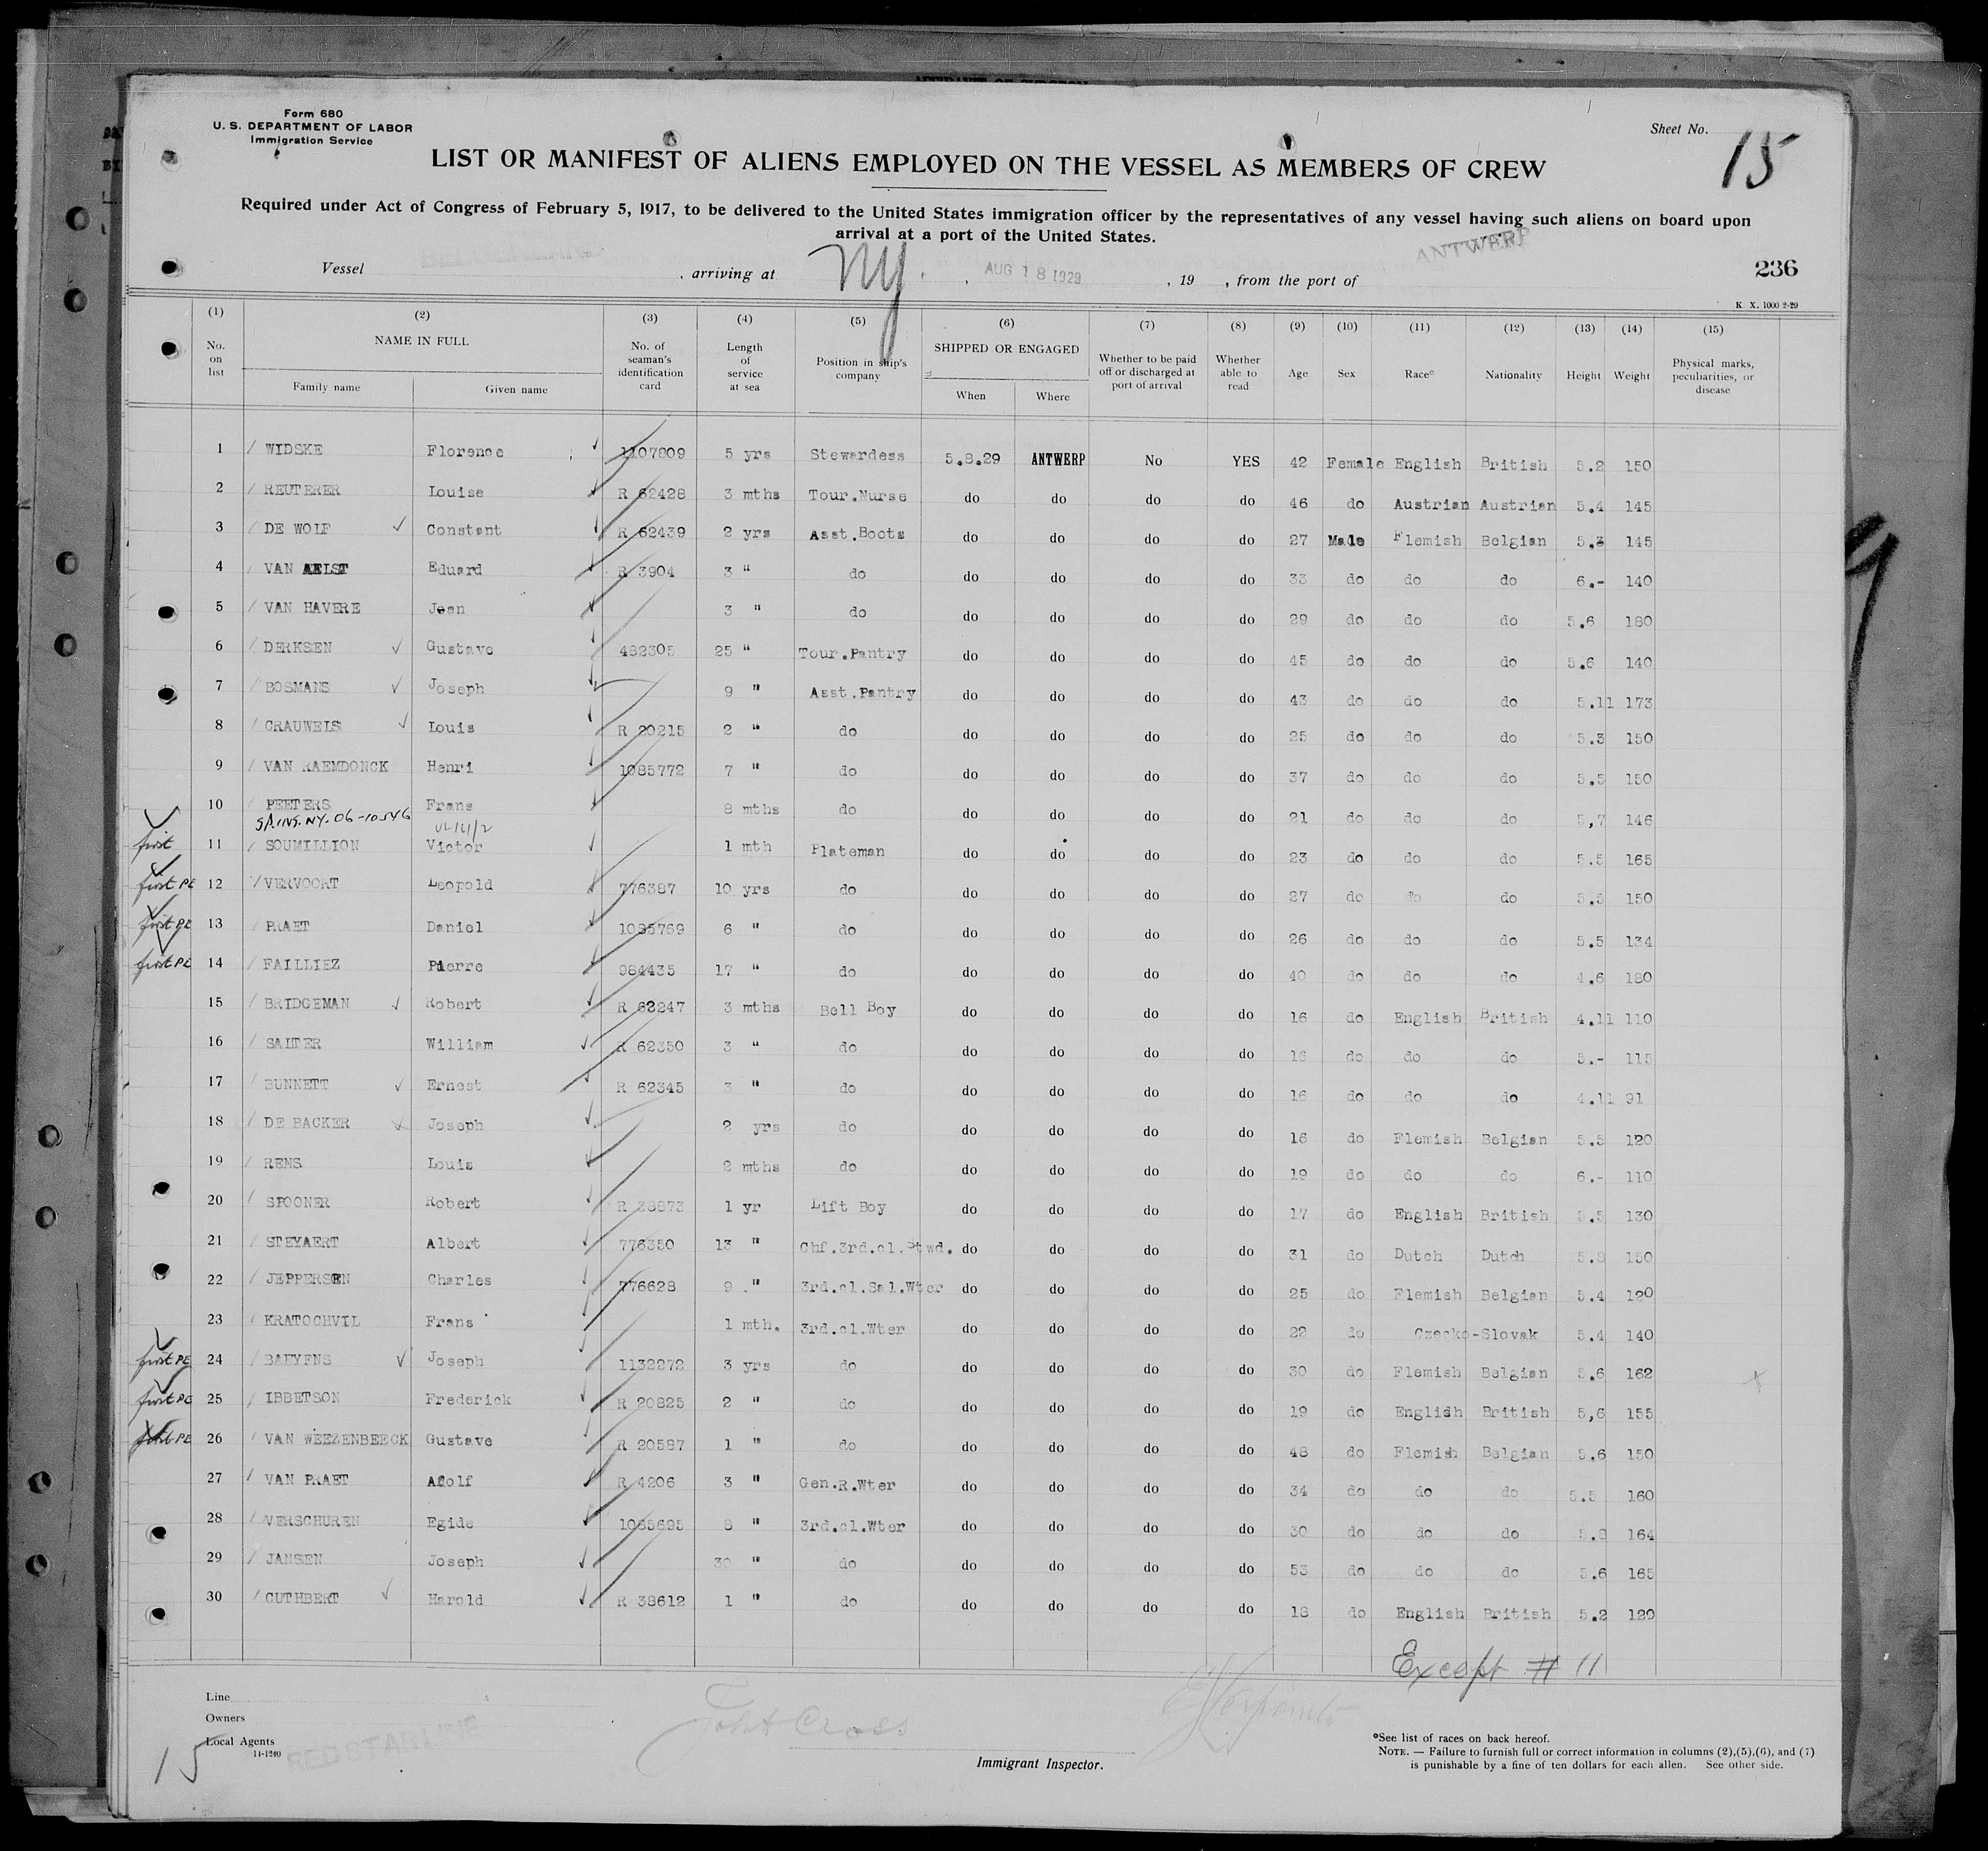 Form 680
U. S. DEPARTMENT OF LABOR
Immigration Service
Sheet No. 15
LIST OR MANIFEST OF ALIENS EMPLOYED ON THE VESSEL AS MEMBERS OF CREW
Required under Act of Congress of February 5, 1917, to be delivered to the United States immigration officer by the representatives of any vessel having such aliens on board upon
arrival at a port of the United States.
Vessel , arriving at NY. , AUG 18 1929 , 19 , from the port of ANTWERP
236
K. X. 1000 2-29
(1) (2) (3) (4) (5) (6) (7) (8) (9) (10) (11) (12) (13) (14) (15)
No. on list NAME IN FULL Family name Given name No. of seaman's identification card Length of service at sea Position in ship's company SHIPPED OR ENGAGED When Where Whether to be paid off or discharged at port of arrival Whether able to read Age Sex Race* Nationality Height Weight Physical marks, peculiarities, or disease
1 WIDSKE Florence 1107809 5 yrs Stewardess 5.8.29 ANTWERP No YES 42 Female English British 5.2 150
2 REUTERER Louise R 62428 3 mths Tour.Nurse do do do do 46 do Austrian Austrian 5.4 145
3 DE WOLF Constant R 62439 2 yrs Asst.Boots do do do do 27 Male Flemish Belgian 5.3 145
4 VAN AELST Eduard R 3904 3 " do do do do do 33 do do do 6.- 140
5 VAN HAVERE Jean 3 " do do do do do 29 do do do 5.6 180
6 DERKSEN Gustave 482305 25 " Tour.Pantry do do do do 45 do do do 5.6 140
7 BOSMANS Joseph 9 " Asst.Pantry do do do do 43 do do do 5.11 173
8 CRAUWELS Louis R 20215 2 " do do do do do 25 do do do 5.3 150
9 VAN RAEMDONCK Henri 1085772 7 " do do do do do 37 do do do 5.5 150
10 PEETERS Frans 8 mths do do do do do 21 do do do 5,7 146
first 11 SOUMILLION Victor 1 mth Plateman do do do do 23 do do do 5.5 165
first PE 12 VERVOORT Leopold 776387 10 yrs do do do do do 27 do do do 5.5 150
first PE 13 PRAET Daniel 1085769 6 " do do do do do 26 do do do 5.5 134
first PE 14 FAILLIEZ Pierre 984435 17 " do do do do do 40 do do do 4.6 180
15 BRIDGEMAN Robert R 62247 3 mths Bell Boy do do do do 16 do English British 4.11 110
16 SALTER William R 62350 3 " do do do do do 16 do do do 5.- 115
17 BUNNETT Ernest R 62345 3 " do do do do do 16 do do do 4.11 91
18 DE BACKER Joseph 2 yrs do do do do do 16 do Flemish Belgian 5.5 120
19 RENS Louis 2 mths do do do do do 19 do do do 6.- 110
20 SPOONER Robert R 38873 1 yr Lift Boy do do do do 17 do English British 130
21 STEYAERT Albert 776350 13 " Chf.3rd.cl.Stwd. do do do do 31 do Dutch Dutch 5.8 150
22 JEPPERSEN Charles 776628 9 " 3rd.cl.Sal.Wter do do do do 25 do Flemish Belgian 5.4 120
23 KRATOCHVIL Frans 1 mth. 3rd.cl.Wter do do do do 22 do Czecko-Slovak 5.4 140
first PE 24 BAEYENS Joseph 1132272 3 yrs do do do do do 30 do Flemish Belgian 5.6 162
first PE 25 IBBETSON Frederick R 20825 2 " do do do do do 19 do English British 5,6 155
first PE 26 VAN WEEZENBEECK Gustave R 20587 1 " do do do do do 48 do Flemish Belgian 5.6 150
27 VAN PRAET Adolf R 4206 3 " Gen.R.Wter do do do do 34 do do do 5.5 160
28 VERSCHUREN Egide 1085695 8 " 3rd.cl.Wter do do do do 30 do do do 164
29 JANSEN Joseph 30 " do do do do do 53 do do do 5.6 165
30 CUTHBERT Harold R 38612 1 " do do do do do 18 do English British 5.2 120
Except # 11
Line
Owners
Local Agents RED STAR LINE
14-1240
15
Immigrant Inspector.
*See list of races on back hereof.
NOTE. — Failure to furnish full or correct information in columns (2),(5),(6), and (7)
is punishable by a fine of ten dollars for each alien. See other side.